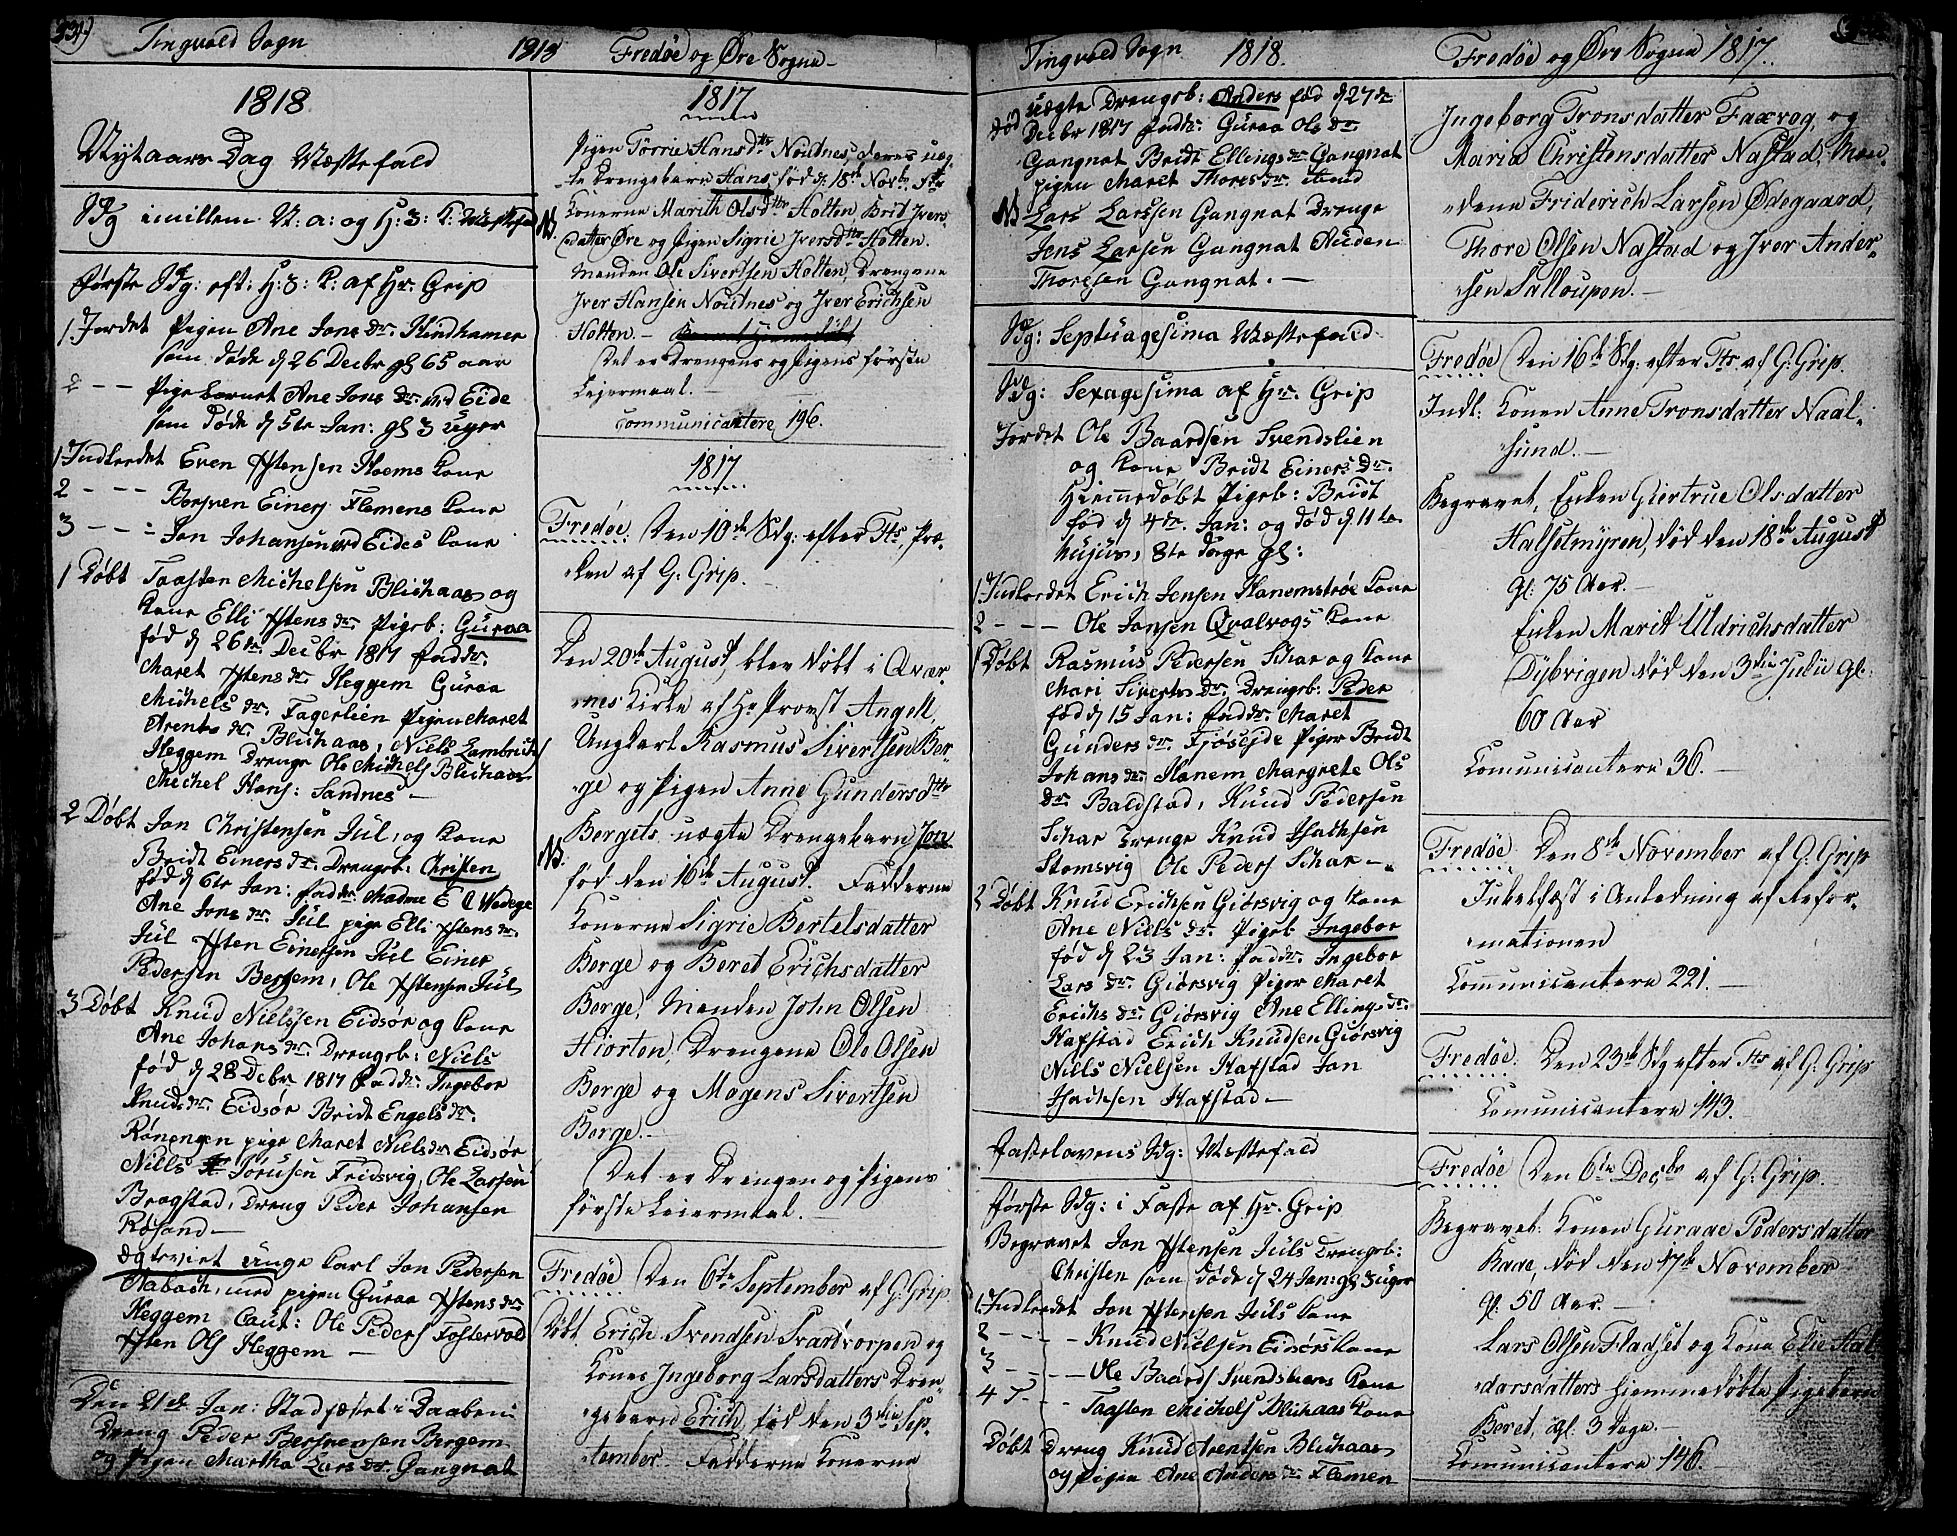 Tingvold Sogn 1818 Fredøe og Øre Sogne
1818
Nytaars Dag Messefald
Sdg imillem N: a: og H: 3: K: Messefald
første Sdg: eft: H: 3: K: af Hr. Grip
1. Jordet Pigen Ane Jons dr. Kindhamer
som døde d 26 Decbr gl 65 aar
2 - - Pigebarnet Ane Jons dr. ved Eide
som døde d 5te Jan: gl 3 uger
1 Indledet Even Ystensen Hoems kone
2 - - - Einers Flemens kone
3 - - - Jon Johansen ved Eides kone
1 Døbt Taasten Michelsen Blichaas og
kone Elli Ystens dr. Pigeb: Guraa
fød d 26de Decbr 1817 fadr:
Maret Ystens dr. Heggem Guraa
Michels dr. Fagerlien Pigen Maret
Arents dr. Blichaas, Niels Lambrich
Heggem Drenge Ole Michels Blichaas
Michel Hans: Sandnes -
2 Døbt Jon Christensen Jul, og kone
Bridt Einers dr. Drengeb: Christen
fød d 6te Jan: fadr: Madme E C Wedege
Ane Jons dr. Jul pige Elli Ystens dr.
Jul Ysten Einersen Jul Einer
Pedersen Bergem, Ole Ystensen Jul
3 Døbt Knud Nielssen Eidsør og kone
Ane Johans dr. Drengeb: Niels
fød d 28 Decbr 1817 fadr: Ingebor
Knuds dr. Eidsør Bridt Engels dr.
pige Maret Niels dr. Eidsør
Niels Jorusen Fridsvig, Ole Larsen
Bragstad, Dreng Peder Johansen
Røsand -
Ogtrviet unge karl Jon Pedersen
Aabach, med pigen Guraa Ystens dr.
Heggem Caut: Ole Peders Fostervold
Ysten Ols Heggem -
Den 21de Jan: Stadfæstet i Daaben
Dreng Peder Bersvensen Bergem
og pigen Martha Lars dr. Gangnat
1817
Pigen Torrie Hansdtr Noutnes, deres uæg-
te Drengebarn Hans, fød d. 18de Novbr. Ftr
NB. Konerne Marith Olsdtr Holten Brit Ivers-
datter Øre og Pigen Sigrie Iversdtr Holten.
Manden Ole Sivertsen Holten, Drengene
Iver Hansen Noutnes og Iver Erichsen
Holten. -
Det er Drengens og Pigens første
Leiermaal.
Communicantere 196.
1817
Fredøe Den 10de Sdg: efter Ttis, Præ-
ken af G: Grip.
Den 20de August, blev døbt i Qvær-
nes Kirke af Hr Provst Angell,
Ungkarl Rasmus Sivertsen Ber-
ge og Pigen Anne Gundersdtr
NB. Bergets uægte Drengebarn Jon
fød den 16de August. Fadderne
Konerne Sigrie Bertelsdatter
Berge og Beret Erichsdatter
Berge, Manden John Olsen
Hiorten, Drengene Ole Olsen
Berge og Mogens Sivertsen
Berge. -
Det er Drengen og Pigens
første Leiermaal. -
Fredøe Den 6te September af G: Grip
Døbt Erich Svendsen Svartvorpen og
Kones Ingeborg Larsdatters Dren-
gebarn Erich, fød den 3die Sep-
tember. Fadderne Konerne
Tingvold Sogn 1818. Fredøe og Øre Sogne 1817.
Død uægte Drengeb: Anders fød d 27de
Decbr 1817 fadr: Guraa Ols dr.
Gangnat Bridt Ellings dr. Gangnat
pigen Maret Thores dr.
NB Lars Larssen Gangnat Drenge
Jens Larsen Gangnat Auden
Thoresen Gangnat. -
Sdg: Septuagesima Messefald
Sdg: Sexagesima af Hr. Grip
Jordet Ole Baardsen Svendslien
og kone Bridt Einers Dr.
Hiemmedøbt Pigeb: Bridt
fød d 4de Jan: og død d 11te
hujus, 8te dage gl:
1. Indledet Erich Jensen Hanemstrøe kone
2 - - - Ole Jonsen Qvalvogs kone
1 Døbt Rasmus Pedersen Schar og kone
Mari Siverts dr. Drengeb: Peder
fød d 15 Jan: fadr: Maret
Gunders dr. Fjøseide Piger Bridt
Johans dr. Hanem Margrete Ols
dr. Baldstad, Knud Pedersen
Schar Drenge Knud Isachsen
Stomsvig Ole Peders Schar -
2 Døbt Knud Erichsen Giørsvig og kone
Ane Niels dr. Pigeb Ingebor
fød d 23 Jan: fadr: Ingebor
Lars dr. Giørsvig Piger Maret
Erichs dr. Giørsvig Ane Ellings dr.
Hafstad Erich Knudsen Giørsvig
Niels Nielsen Hafstad Jon
Isachsen Hafstad -
Fastelavens Sdg: Messefald
første Sdg: i Faste af Hr. Grip
Begravet Jon Ystensen Juls Drengeb:
Christen som døde d 24 Jan: gl 3 uger
1. Indledet Jon Ystensen Juls kone
2 - - - Knud Nielsen Eidsørs kone
3 - - - Ole Baards Svendsliens kone
4 - - Taasten Michels Blichaas kone
Døbt Dreng Knud Arentsen Blichaas
og Pigen Ane Anders dr. Flemen
Ingeborg Tronsdatter Faxvog, og
Maria Christensdatter Nastad, Mæn-
dene Friderich Larsen Ødegaard,
Thore Olsen Nastad og Iver Ander-
sen Salloupen. -
Fredøe Den 16de Sdg. efter Tts af G: Grip.
Indl: Konen Anne Tronsdatter Naal-
sund. -
Begravet, Enken Giertrue Olsdatter
Halsetmyren, død den 18de August
gl: 75 Aar. -
Enken Marit Uldrichsdatter
Dybvigen død den 3die Julii gl:
60 Aar
Comunicantere 36. -
Fredøe Den 8de November af G: Grip
Jubelfæst i Anledning af Refor-
mationen
Communicantere 221. -
Fredøe. Den 23de Sdg efter Tts af G: Grip
Comunicantere 143.
Fredøe Den 6te Decbr af G: Grip.
Begravet: Konen Guraae Pedersdatter
død den 17de November
gl: 50 Aar. -
Lars Olsen Fladset og Kone Elie Hal-
dorsdatters hjemmedøbte Pigebarn
Beret, gl. 3 Dage. -
Comunicantere 146. -